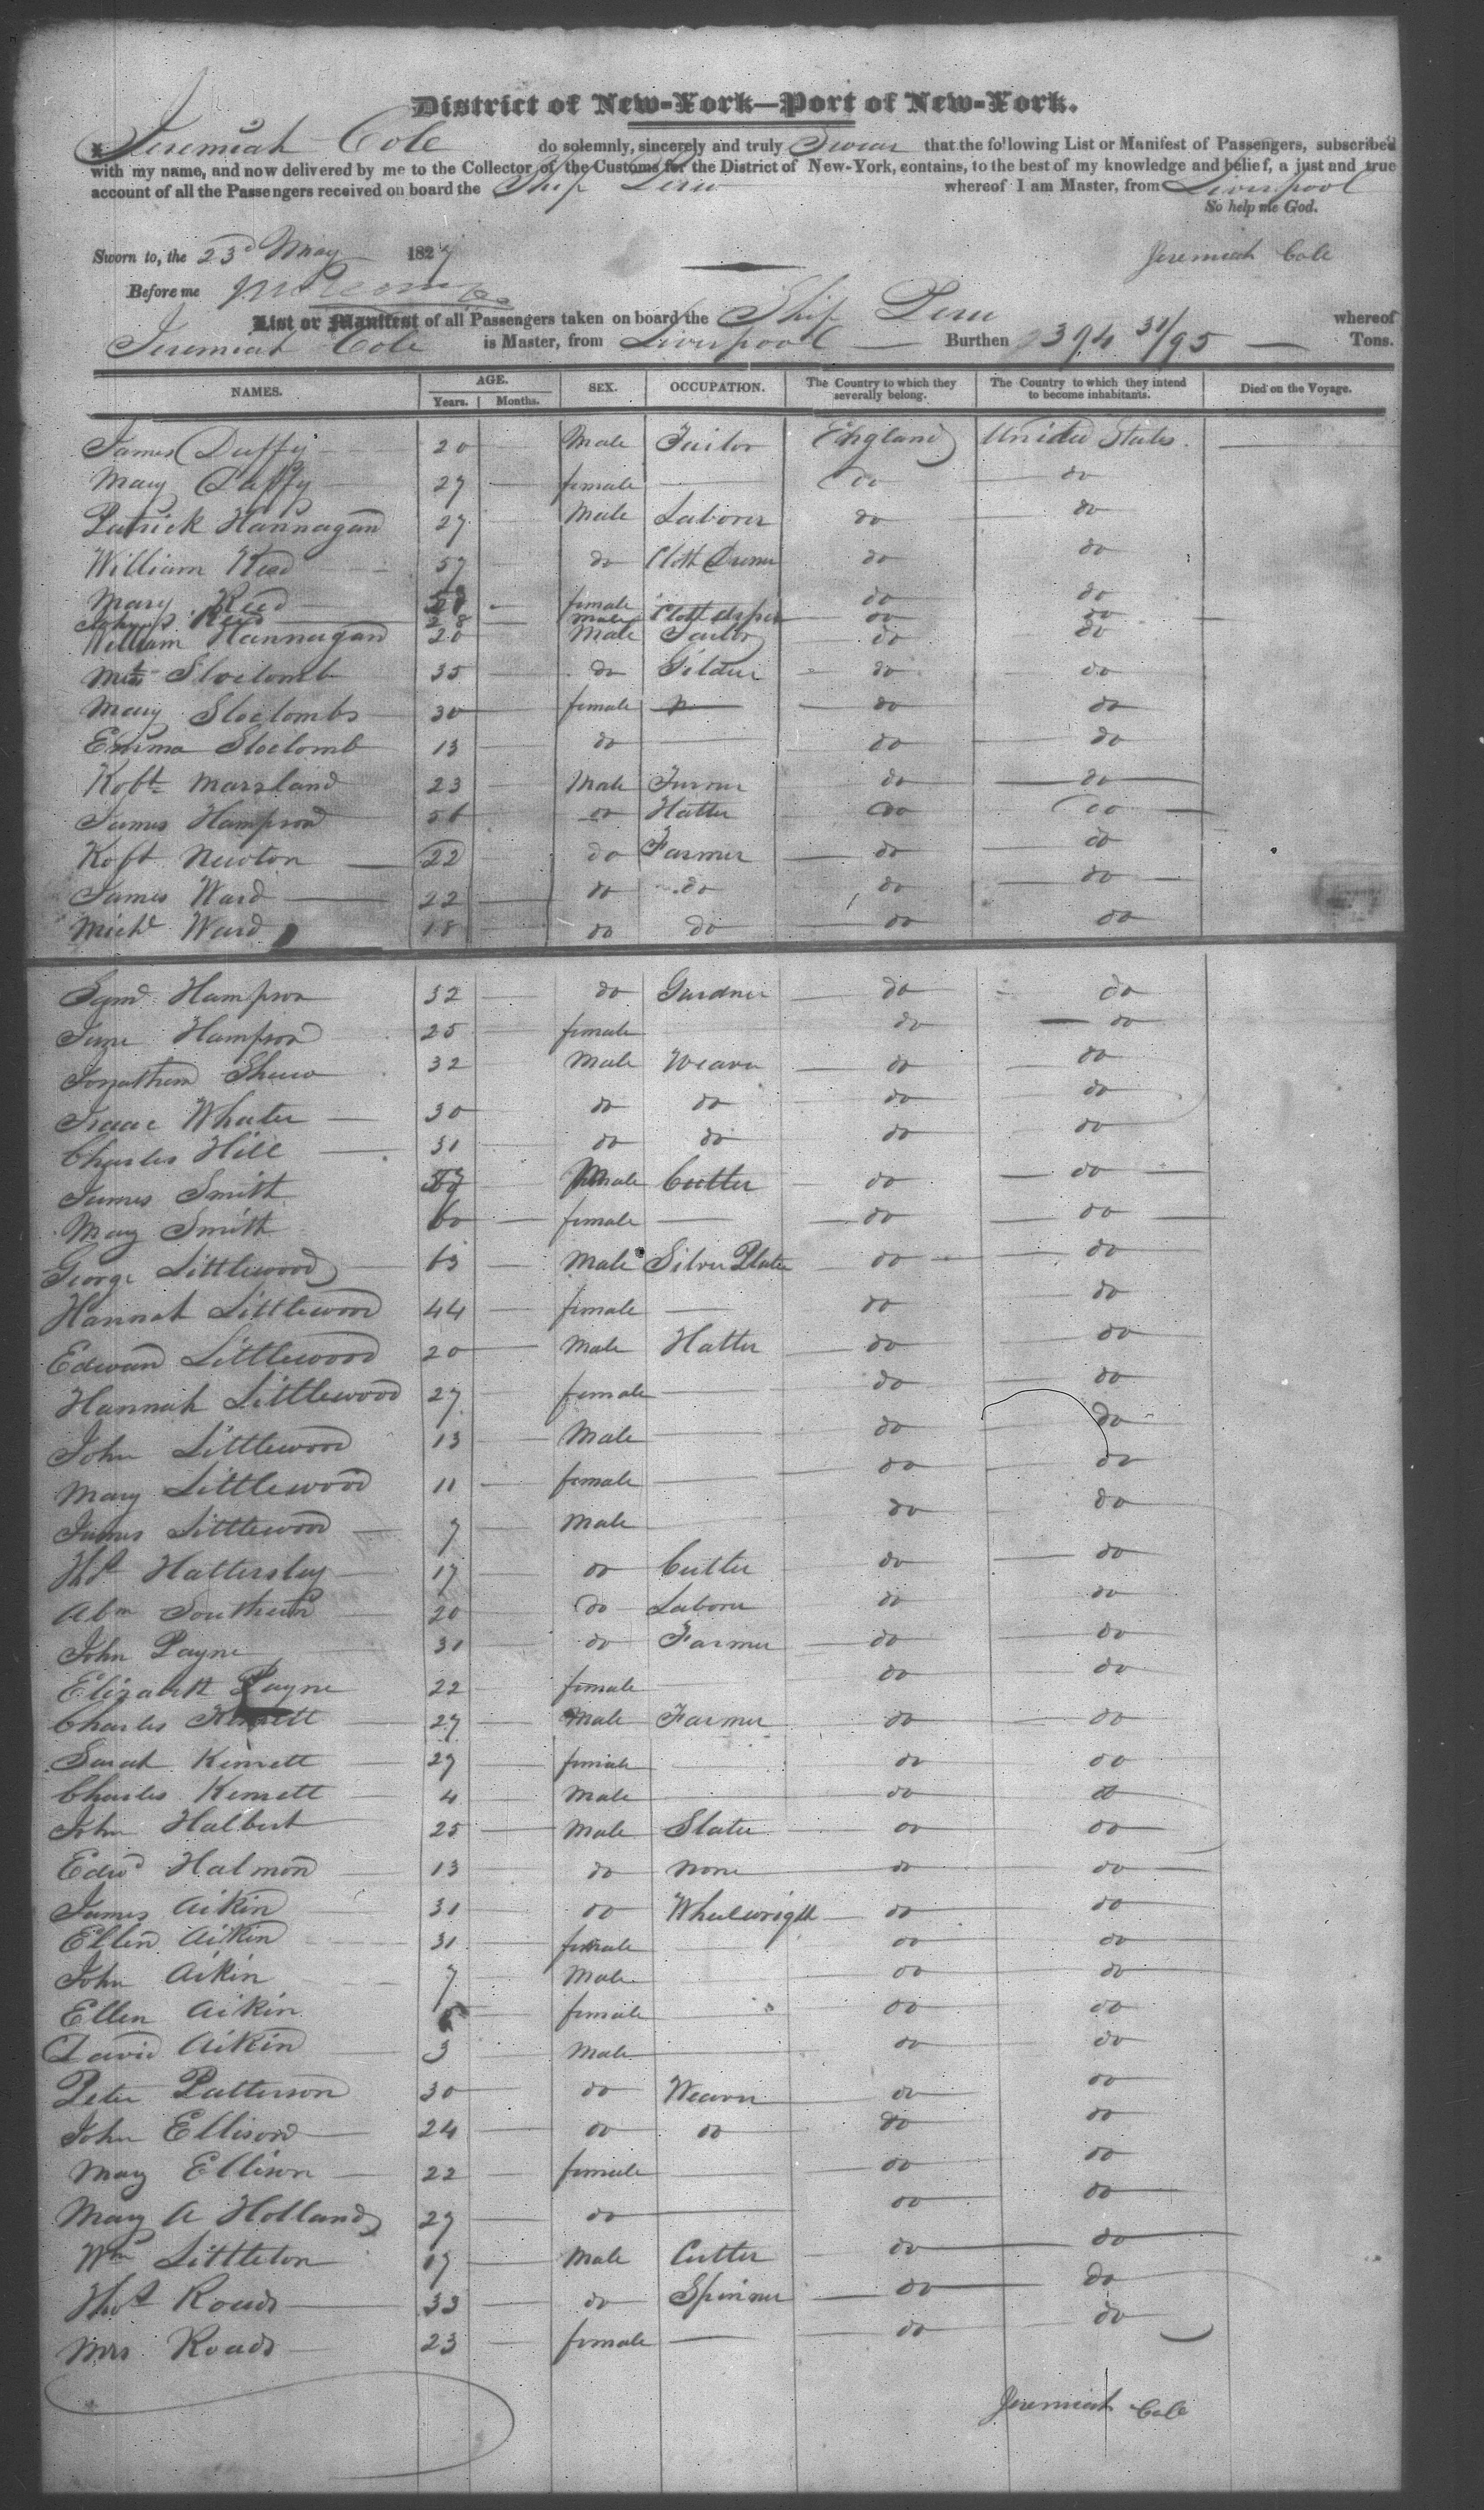 District of New-York—Port of New-York.
Jeremiah Cole do solemnly, sincerely and truly Swear that the following List or Manifest of Passengers, subscribed
with my name, and now delivered by me to the Collector of the Customs for the District of New-York, contains, to the best of my knowledge and belief, a just and true
account of all the Passengers received on board the Ship Peru whereof I am Master, from Liverpool
So help me God.
Sworn to, the 23d May 1827 Jeremiah Cole
Before me
List or Manifest of all Passengers taken on board the Ship Peru whereof
Jeremiah Cole is Master, from Liverpool — Burthen 394 31/95 — Tons.
NAMES. AGE. Years. Months. SEX. OCCUPATION. The Country to which they severally belong. The Country to which they intend to become inhabitants. Died on the Voyage.
James Duffy 20 Male Tailor England United States
Mary Duffy 27 female do do
Patrick Hannagan 27 Male Laborer do do
William Reed 57 do Cloth do do
Mary Reed female do do
Reed 28 male Cloth do do
William Hannagan 20 Male Tailor do do
Slocomb 35 do do do
Mary Slocombs 30 female do do
Emma Slocomb 13 do do do
Robt Marsland 23 Male do do
James Hampson 56 do Hatter do do
Robt Newton 22 do Farmer do do
James Ward 22 do do do do
Michl Ward 18 do do do do
Saml Hampson 32 do Gardner do do
Jane Hampson 25 female do do
Jonathan Shaw 32 Male Weaver do do
Isaac Wheater 30 do do do do
Charles Hill 31 do do do do
James Smith Male Cutler do do
Mary Smith 60 female do do
George Littlewood 63 Male Silver Plater do do
Hannah Littlewood 44 female do do
Edward Littlewood 20 Male Hatter do do
Hannah Littlewood 27 female do do
John Littlewood 13 Male do do
Mary Littlewood 11 female do do
James Littlewood 7 Male do do
Thos Hattersley 17 do Cutler do do
Abm Southern 20 do Laborer do do
John Payne 31 do Farmer do do
Elizabeth Payne 22 female do do
Charles Kennett 27 Male Farmer do do
Sarah Kennett 27 female do do
Charles Kennett 4 Male do do
John Halbert 25 Male Slater do do
Edwd Halmon 13 do none do do
James Aikin 31 do Wheelwright do do
Ellen Aikin 31 female do do
John Aikin 7 Male do do
Ellen Aikin female do do
David Aikin 3 Male do do
Peter Patterson 30 do Weaver do do
John Ellison 24 do do do do
Mary Ellison 22 female do do
Mary A Holland 27 do do do
Wm Littleton 19 Male Cutler do do
Thos Roads 33 do Spinner do do
Mrs Roads 23 female do do
Jeremiah Cole